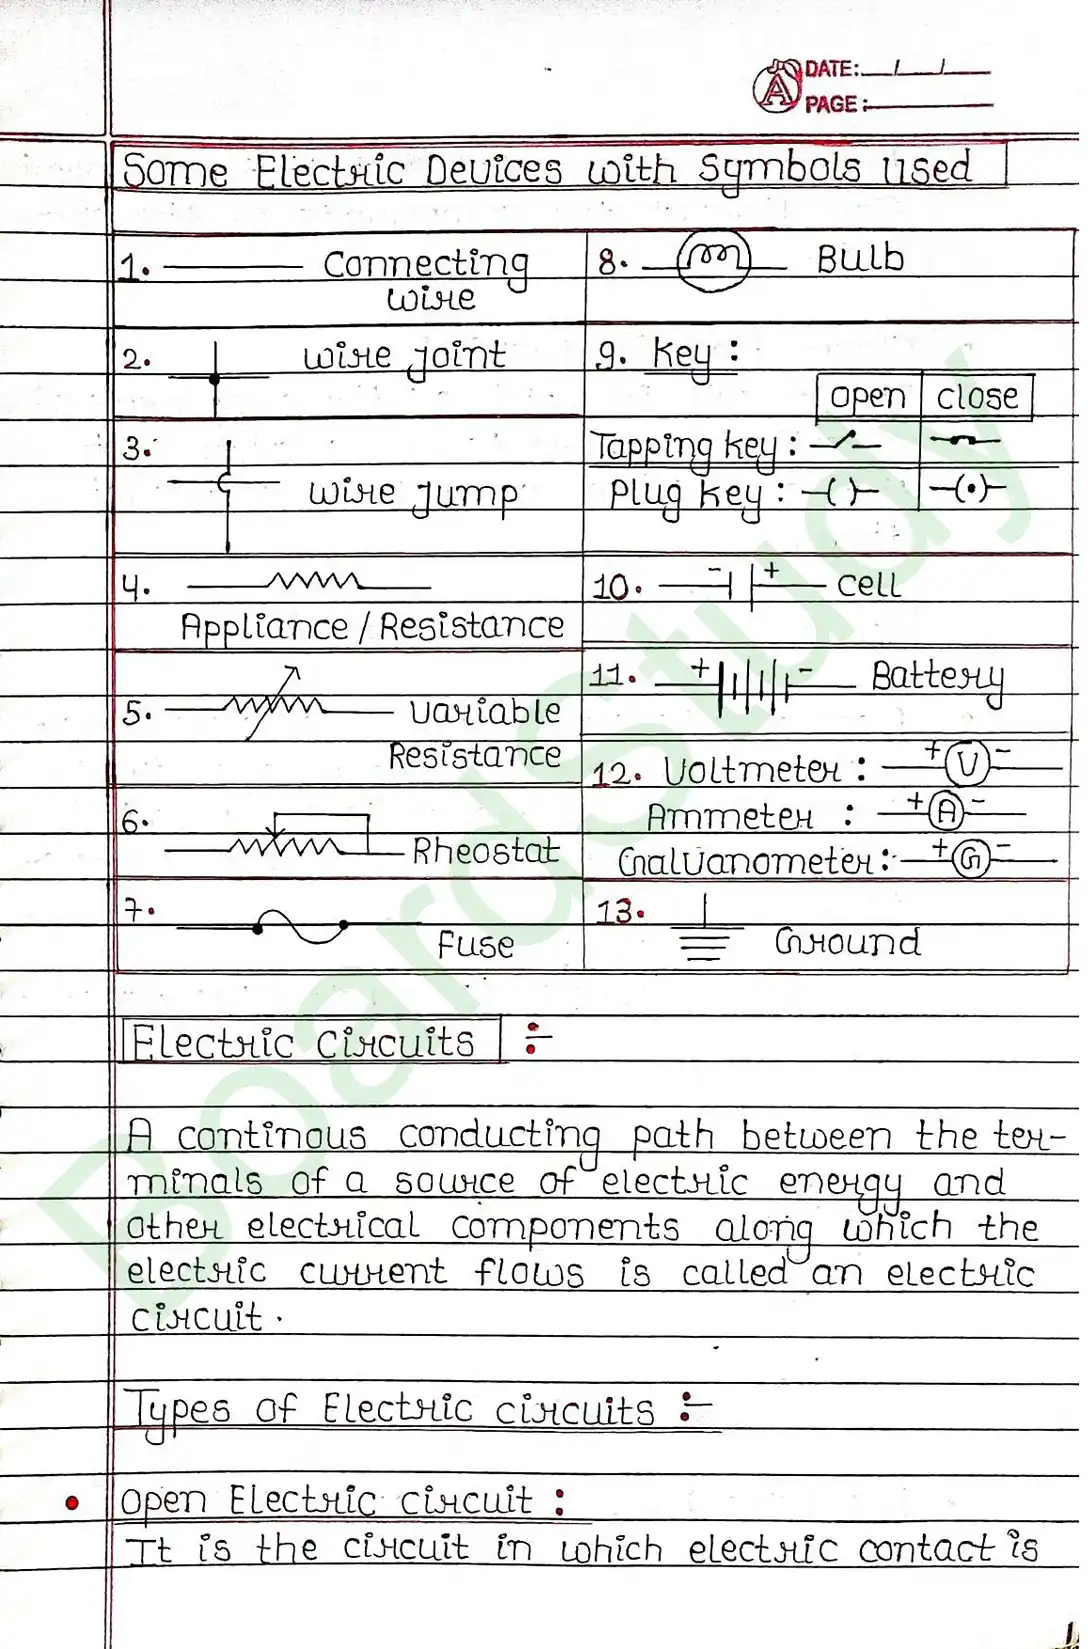 DATE: / /
PAGE:
Some Electric Devices with Symbols Used
1. Connecting
wire
2. wire joint
3.
wire jump
4.
Appliance / Resistance
5. Variable
Resistance
6.
Rheostat
7.
Fuse
8. Bulb
9. Key :
open close
Tapping key :
Plug key :
10. - + cell
11. + - Battery
12. Voltmeter : + V -
Ammeter : + A -
Galvanometer : + G -
13.
Ground
Electric Circuits :-
A continous conducting path between the ter-
minals of a source of electric energy and
other electrical components along which the
electric current flows is called an electric
circuit.
Types of Electric circuits :-
• Open Electric circuit :
It is the circuit in which electric contact is
BoardStudy